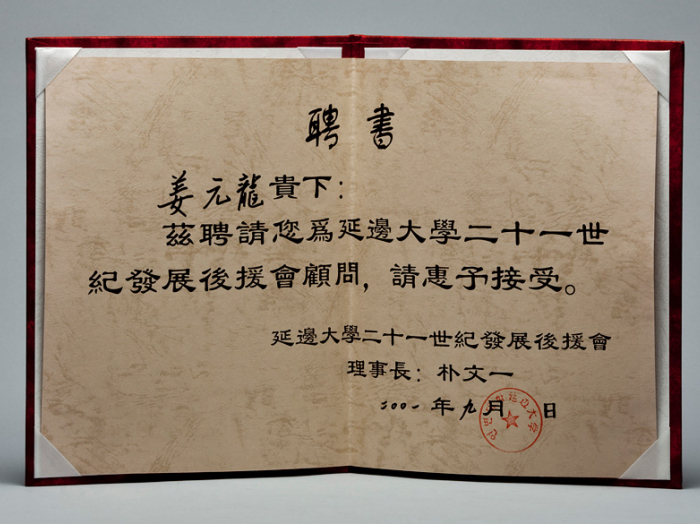 聘書
姜元龍貴下：
茲聘請您爲延邊大學二十一世
紀發展後援會顧問，請惠予接受。
延邊大學二十一世紀發展後援會
理事長：朴文一
二〇〇一年九月 日
연변대학 延边大学